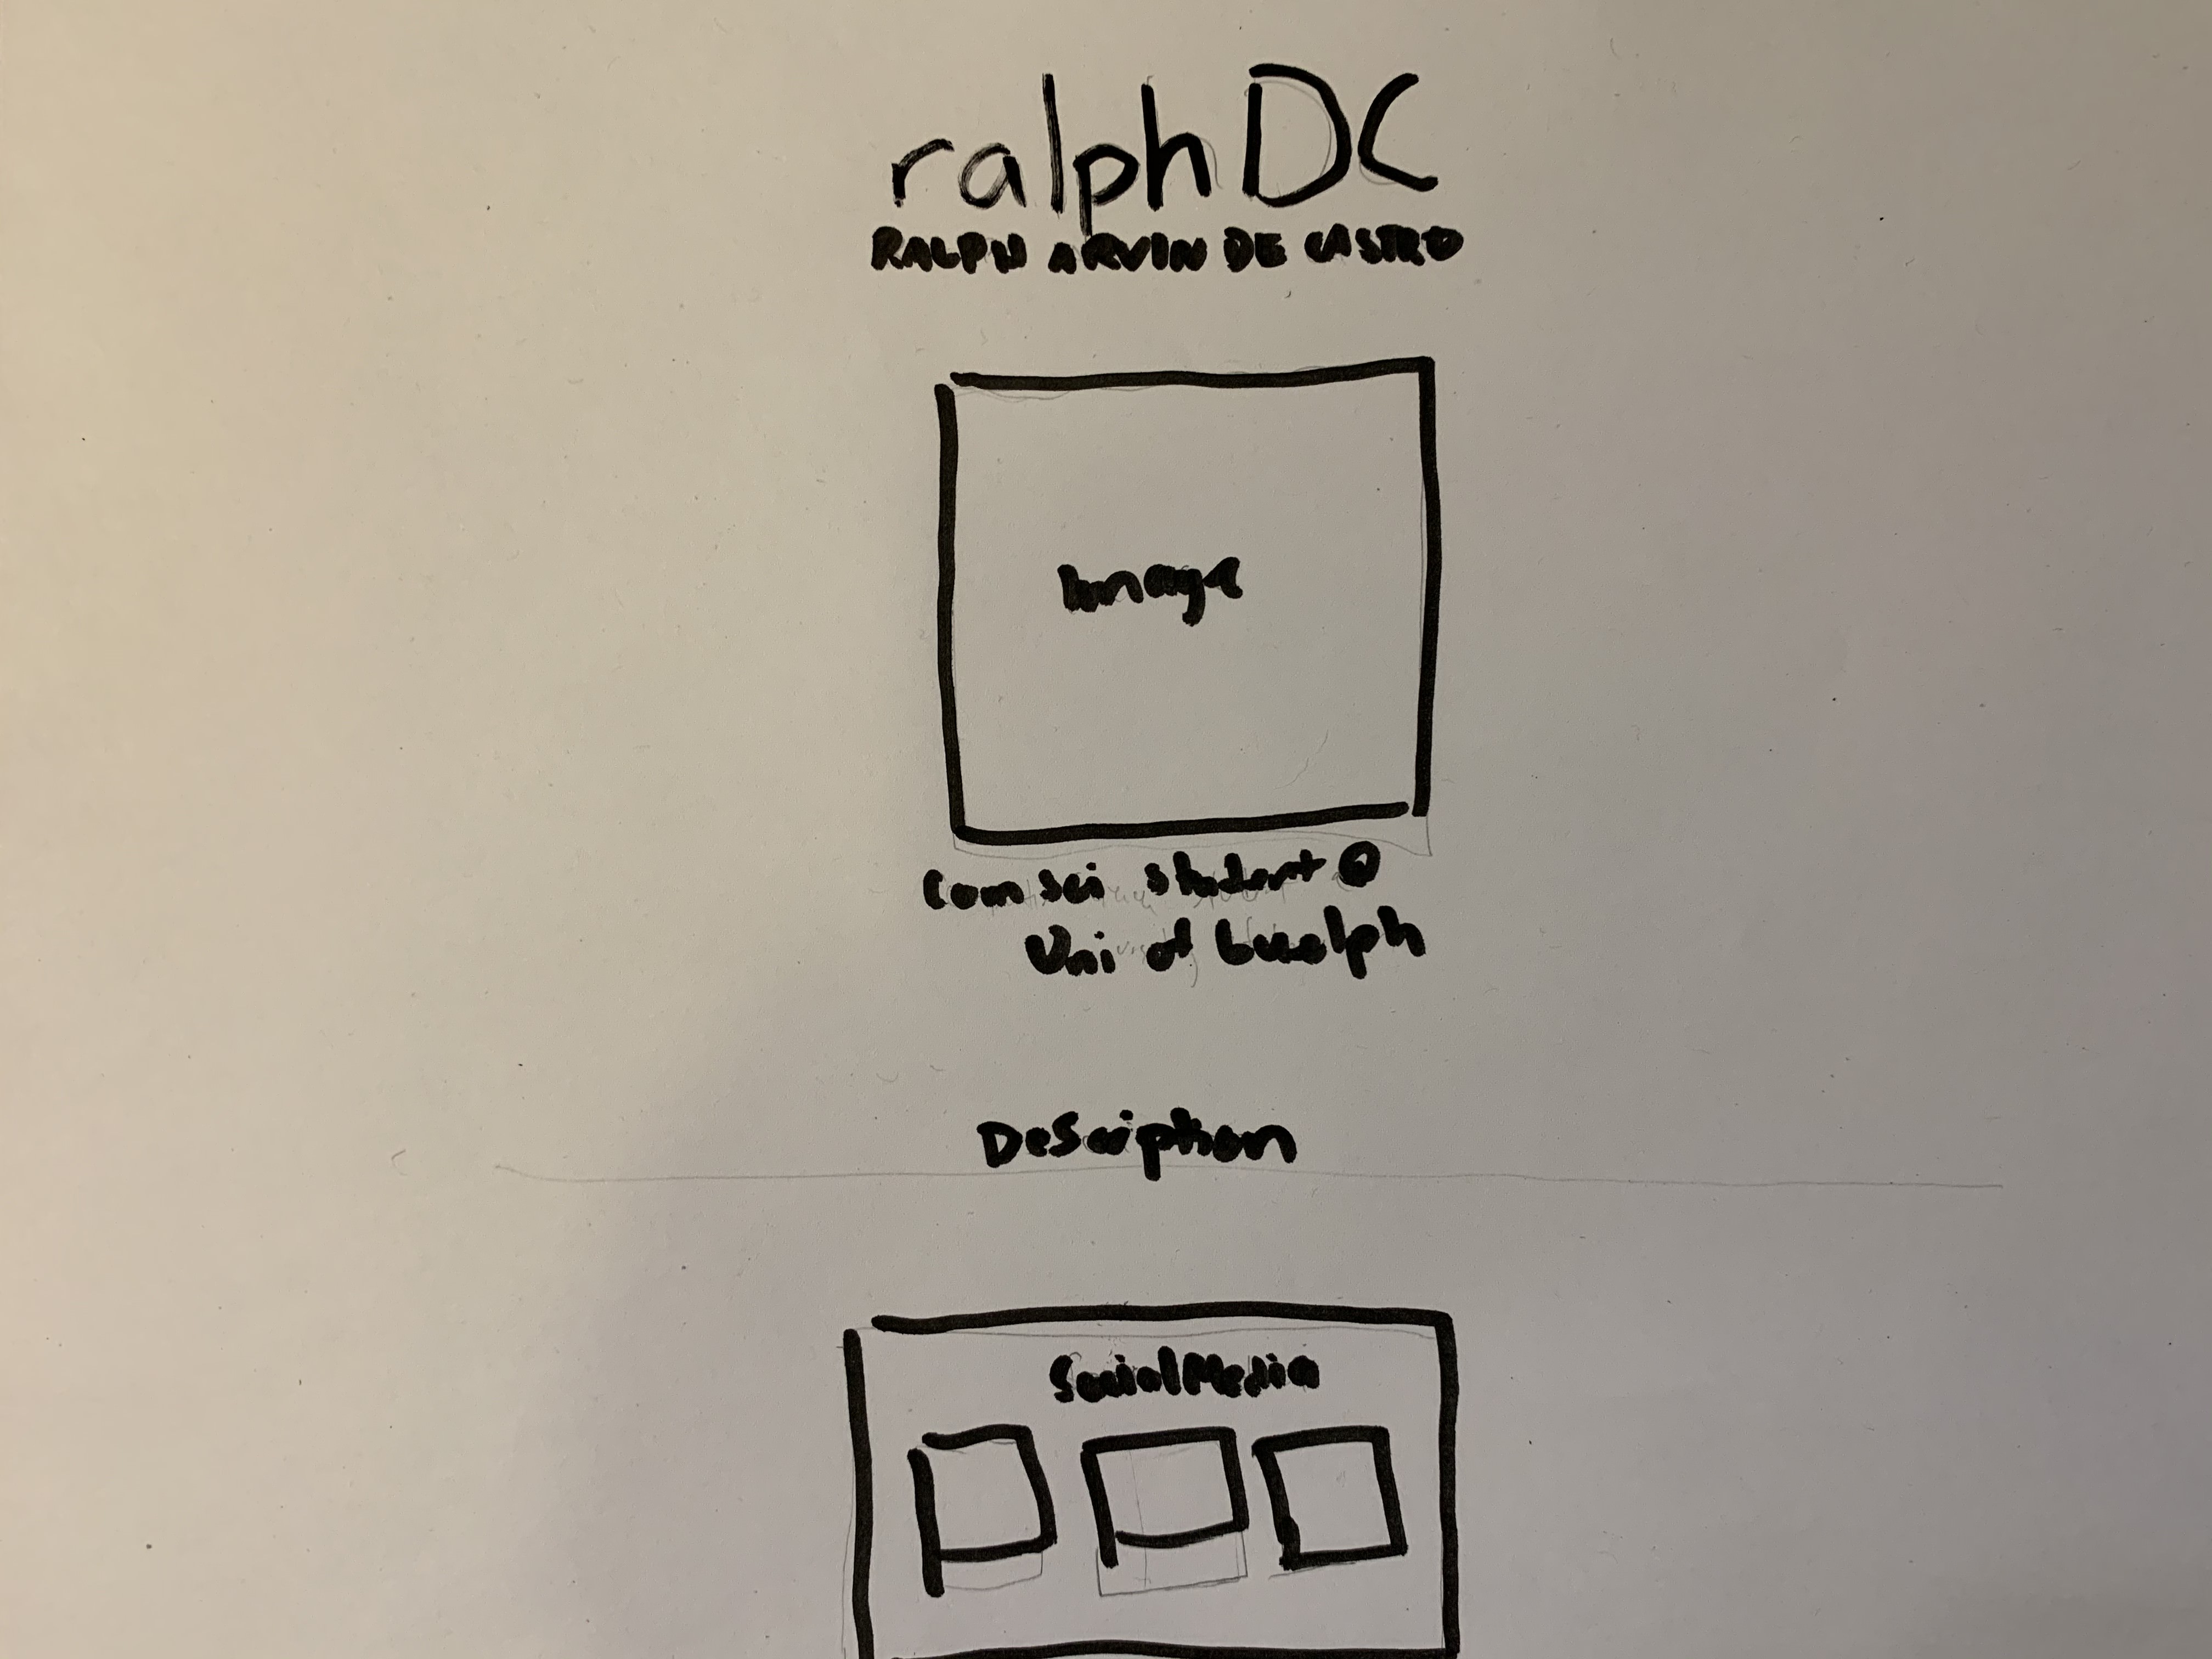 ralphDC
RALPH ARVIN DE CASTRO
Image
Com Sci student @
Uni of Guelph
Description
Social Media